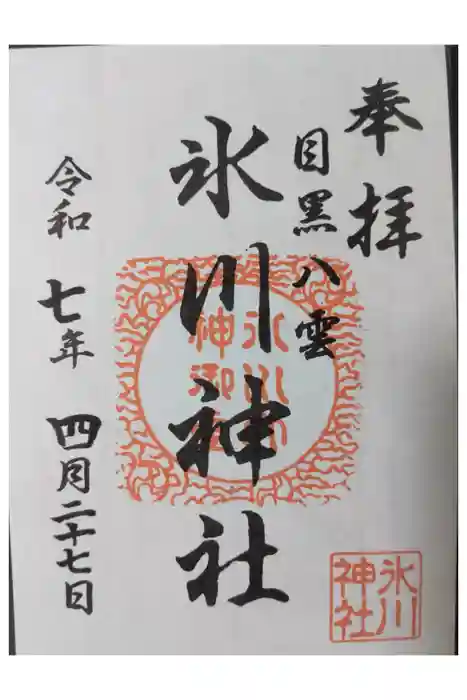 奉拝
目黒八雲
氷川神社
令和七年四月二十七日
氷川
神社